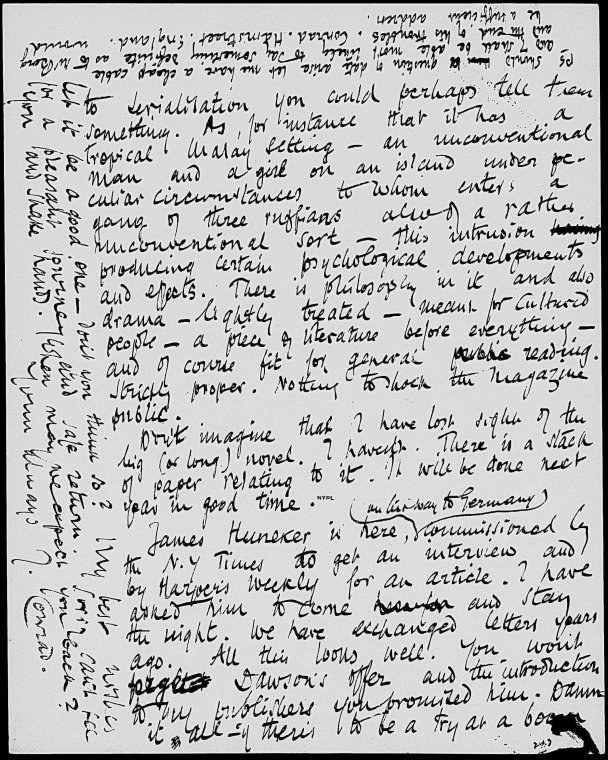 to serialisation you could perhaps tell them
something. As, for instance that it has a
tropical Malay setting – an unconventional
man and a girl on an island under pe-
culiar circumstances to whom enters a
gang of three ruffians also of a rather
unconventional sort – this intrusion
producing certain psychological developments
and effects. There is philosophy in it and also
drama – lightly treated – meant for cultured
people – a piece of literature before everything –
and of course fit for general reading.
Strictly proper. Nothing to shock the Magazine
public.
Don't imagine that I have lost sight of the
big (or long) novel. I haven't. There is a stack
of paper relating to it. It will be done next
year in good time.
NYPL
(on his way to Germany)
James Huneker is here, commissioned by
the N.Y Times to get an interview and
by Harpers Weekly for an article. I have
asked him to come and stay
the night. We have exchanged letters years
ago. All this looks well. You won't
forget Dawson's offer and the introduction
to my publishers you promised him. Damn
it all – if there is to be a try at a boom
let it be a good one – don't you think so? My best wishes
for a pleasant journey and safe return. Sorry I can't see
you and shake hands. When may we expect you back?
Yours always J. Conrad.
PS Should question of date arise let me have a cheap cable
and I shall be able most likely to say something definite as to
and the end of his troubles. Conrad. Hamstreet. England. would
be a sufficient address.